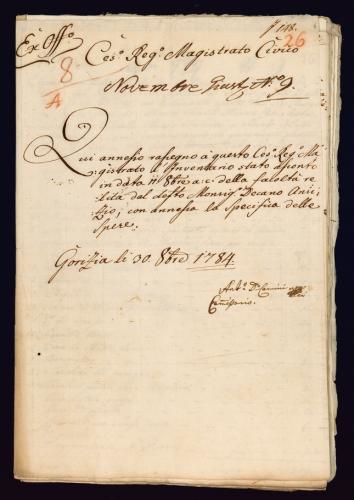 Ex Offo
118.
26
8
A
Ces.o Reg.o Magistrato Civico
Novembre N.o 9.
Qui annesso rassegno à questo Ces.o Reg.o Ma
gistrato l'Inventario stato assonto
in data 11 8bre a: c: della facoltà re
lita dal defto Monsig.r Decano
con annessa la Specifica delle
Spese.
Gorizia li 30. 8bre 1784.
Ant.o